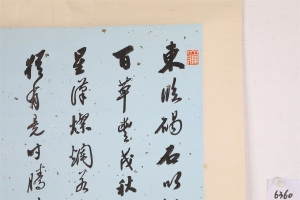 東臨碣石以
百草豐茂秋
星漢燦爛若
猶有竟時騰
6360